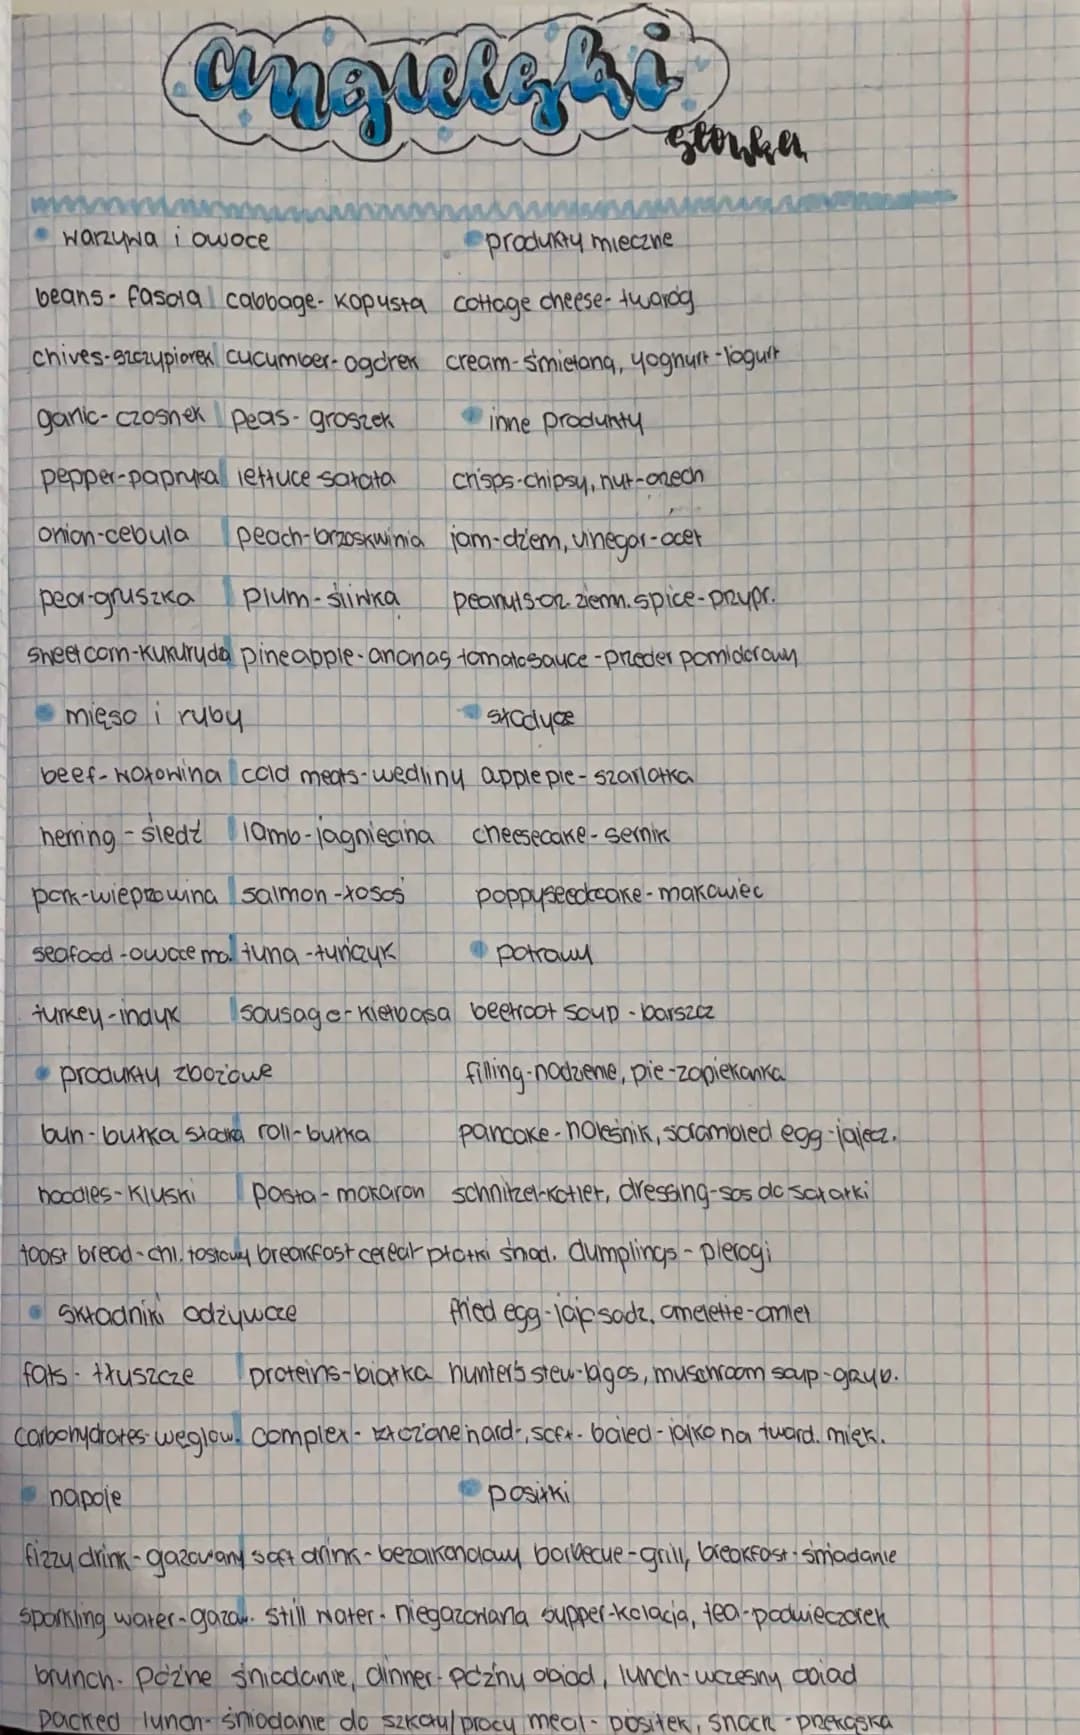 angielski
słówka
• warzywa i owoce • produkty mleczne
beans - fasola | cabbage - kapusta cottage cheese - twaróg
chives - szczypiorek | cucumber - ogórek cream - śmietana, yoghurt - jogurt
garlic - czosnek | peas - groszek • inne produkty
pepper - papryka | lettuce sałata crisps - chipsy, nut - orzech
onion - cebula | peach - brzoskwinia jam - dżem, vinegar - ocet
pear - gruszka | plum - śliwka peanuts - orz. ziemn. spice - przypr.
sweet corn - kukurydza pineapple - ananas tomato sauce - przecier pomidorowy
• mięso i ryby • słodycze
beef - wołowina | cold meats - wędliny apple pie - szarlotka
herring - śledź | lamb - jagnięcina cheesecake - sernik
pork - wieprzowina | salmon - łosoś poppyseedcake - makowiec
seafood - owoce mo. tuna - tuńczyk • potrawy
turkey - indyk | sausage - kiełbasa beetroot soup - barszcz
• produkty zbożowe filling - nadzienie, pie - zapiekanka
bun - bułka słodka roll - bułka pancake - naleśnik, scrambled egg - jajecz.
noodles - kluski | pasta - makaron schnitzel - kotlet, dressing - sos do sałatki
toast bread - chl. tostowy breakfast cereal płatki śniad. dumplings - pierogi
• składniki odżywcze fried egg - jajo sadz. omelette - omlet
fats - tłuszcze | proteins - białka hunter's stew - bigos, muschroom soup - grzyb.
carbohydrates - węglow. complex - złożone hard-, soft- boied - jajko na tward. mięk.
• napoje • posiłki
fizzy drink - gazowany soft drink - bezalkoholowy barbecue - grill, breakfast - śniadanie
sparkling water - gazow. still water - niegazowana supper - kolacja, tea - podwieczorek
brunch - późne śniadanie, dinner - późny obiad, lunch - wczesny obiad
packed lunch - śniadanie do szkoły/pracy meal - posiłek, snack - przekąska